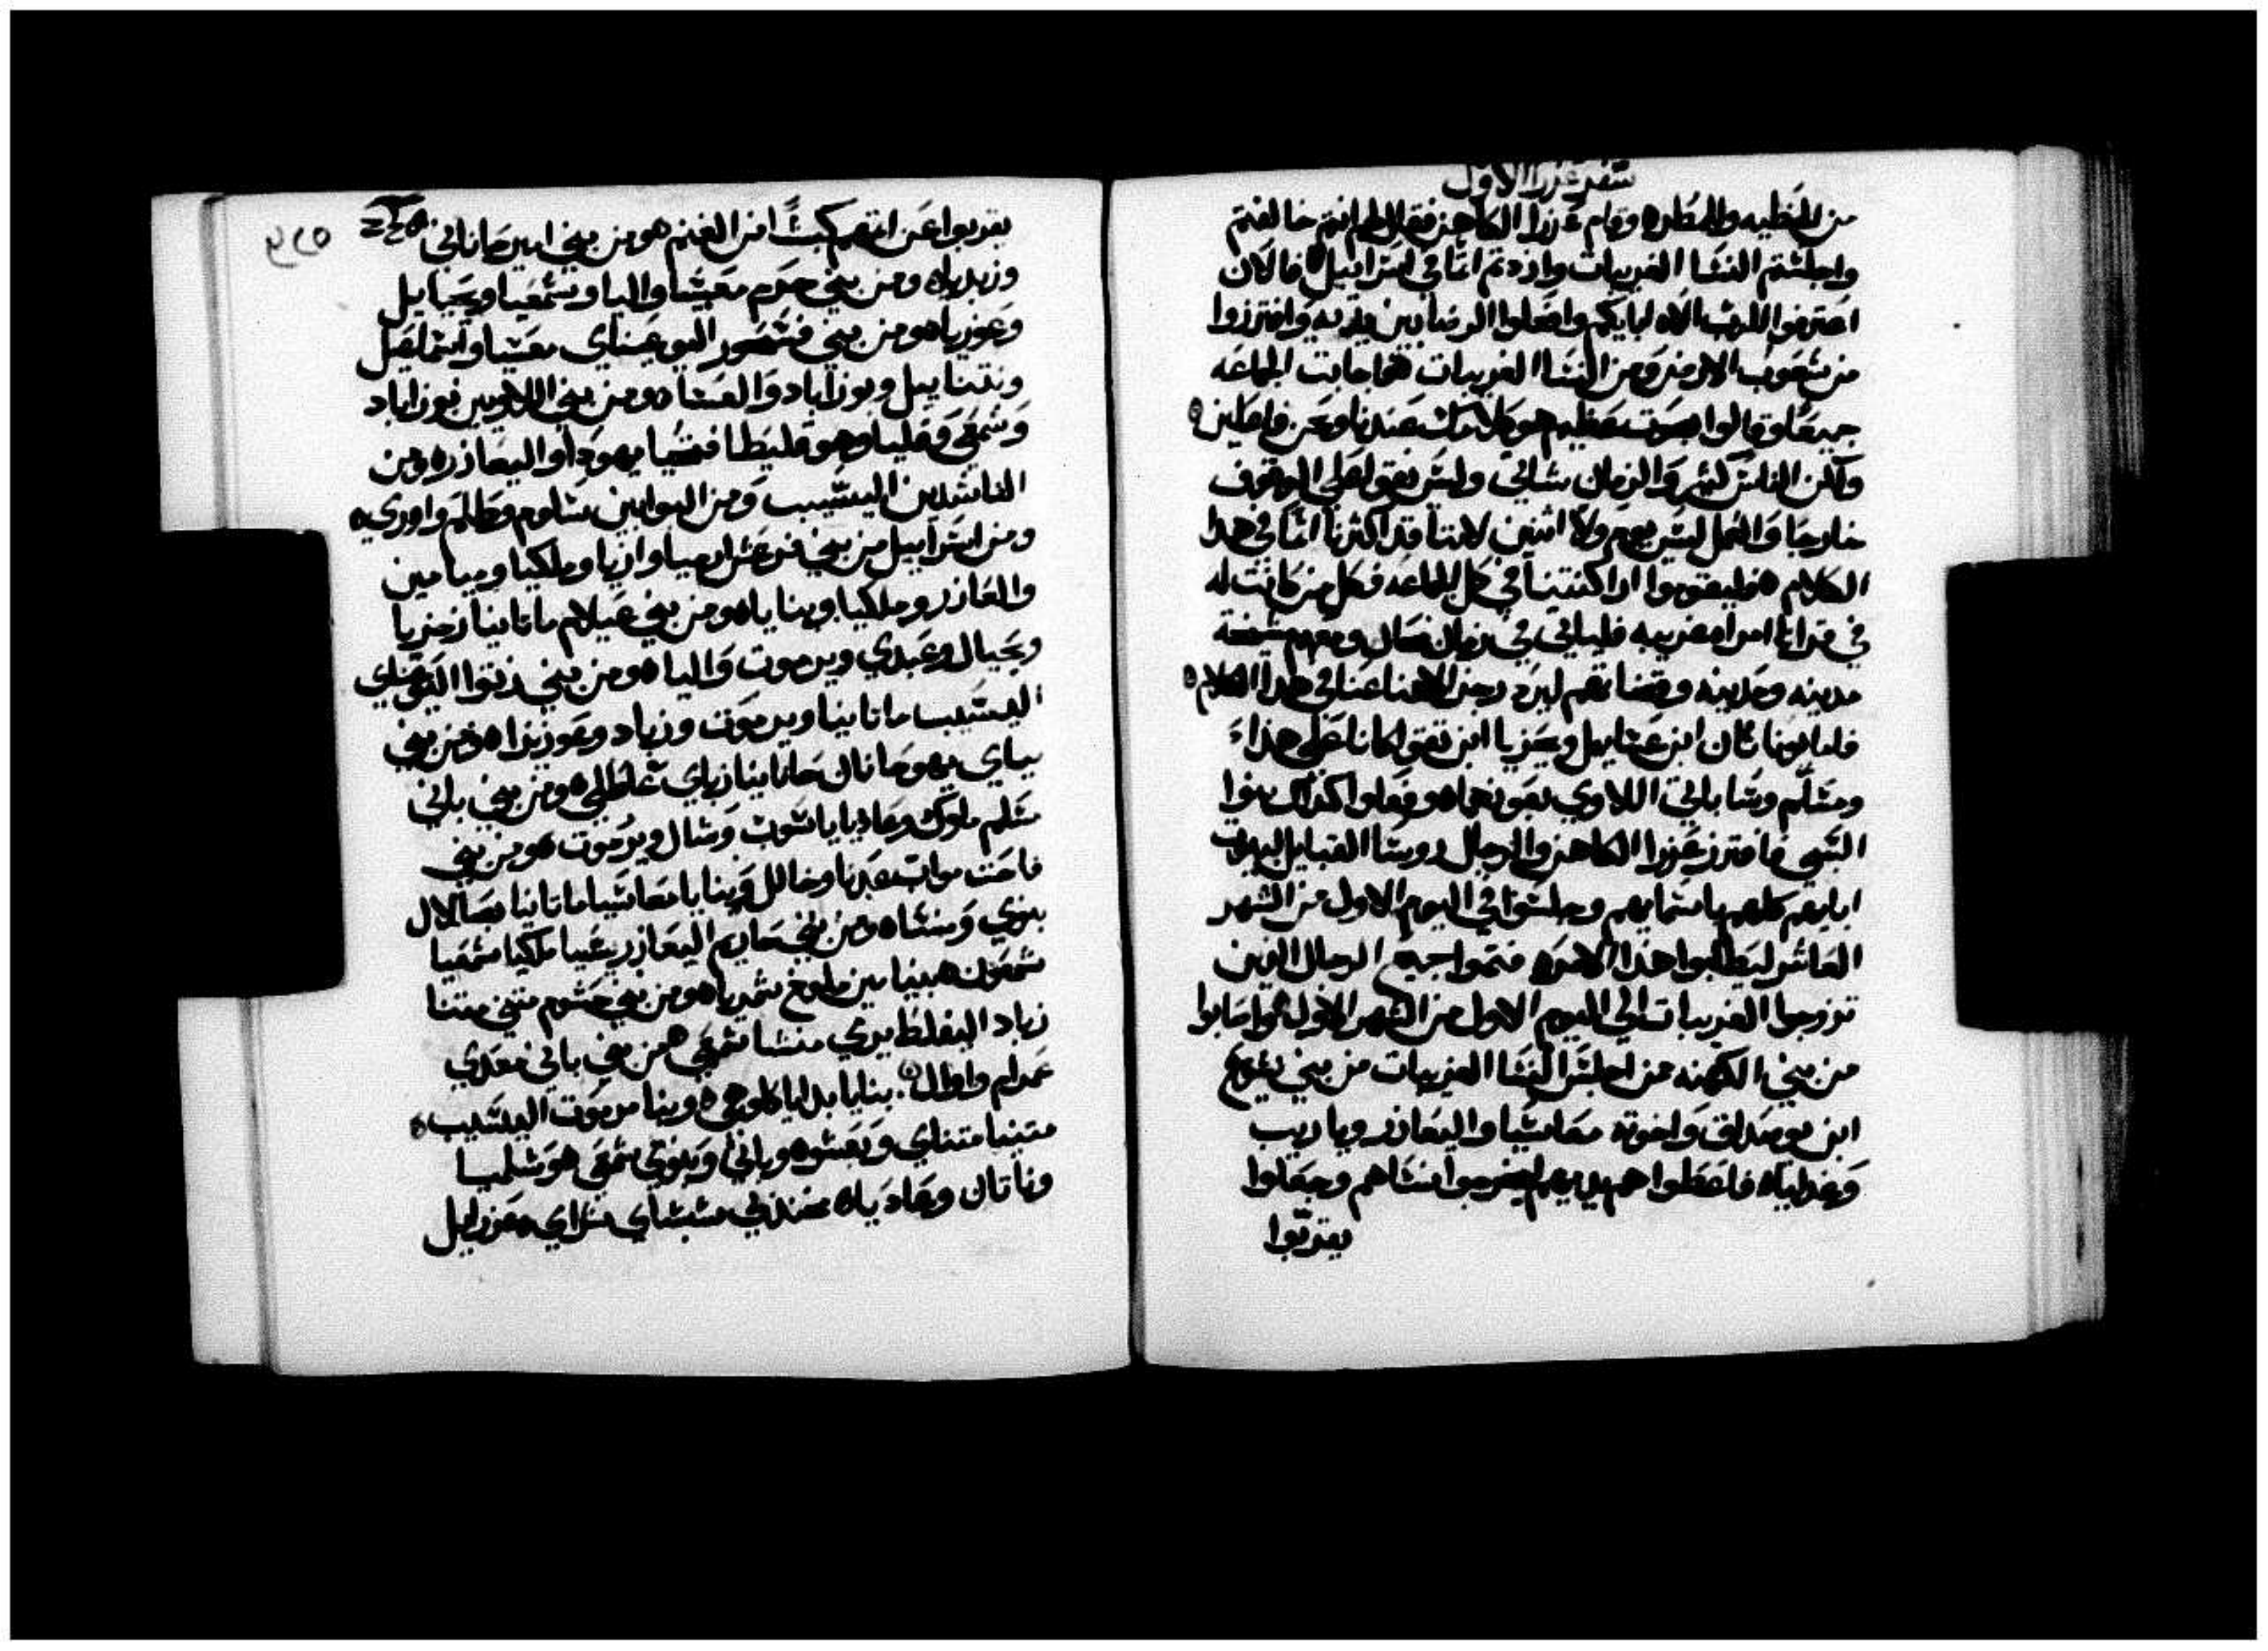 سفر عزرا الاول
من الخطيه والمطره وقام عزرا الكاهن فقال لهم انتم خالفتم
واجلستم النسا الغريبات وازددتم اثما في اسراييل فالان
اعترفوا للرب الاه ابايكم وافعلوا الرضا بين يديه وافترزوا
من شعوب الارض ومن النسا الغريبات فاجابت الجماعه
جميعا وقالوا بصوت عظيم هو كلامك عندنا ونحن فاعلين
ولكن الناس كثير والزمان شاتي وليس نقوا على الوقوف
خارجا والعمل ليس يوم ولا اثنين لاننا قد اكثرنا اثما في هدا
الكلام فليقوموا اراكنتنا في كل الجماعه فكل من كانت له
في قرانا امراه غريبه فلياتي في زمان ومعهم شيخة
مدينه ومدينه وقضاتهم ليرد رجز الاهنا عنا في هدا الكلام
فاما يوناثان ابن عسايل ويحزيا ابن تقوا كانا على هدا
ومسلم وسباتي اللاوي يعونهما وفعلوا كدلك بنوا
السبي فافترز عزرا الكاهن والرجال روسا القبايل لبيوت
ابايهم كلهم باسمايهم وجلسوا في اليوم الاول من الشهر
العاشر ليطلبوا هذا الامر فتموا جميع الرجال الدين
تزوجوا الغريبات الي اليوم الاول من الشهر الاول واصابوا
من بني الكهنه من اجلس النسا الغريبات من بني يشوع
ابن يوصداق واخوته معاسيا واليعازر وياريب
وغداليا فاعطوا يديهم ليخرجوا نساهم وجعلوا
يقربوا
يقربوا عن اتمهم كبشا من الغنم ومن بني امير حاناني
وزبديا ومن بني حرم معسيا واليا وشمعيا ويحيايل
وعوزيا ومن بني فسحور اليوعيناي معسيا واسماعيل
ونتناييل ويوزاباد والعسا ومن بني اللاويين يوزاباد
وشمعي وقليا وهو قليطا فتحيا يهودا واليعازر ومن
الناشدين اليسيب ومن البوابين سلوم وطالم واوري
ومن اسراييل من بني فرعش ارميا وازيا وملكيا وميامين
والعازر وملكيا وبنايا ومن بني عيلام ماتانيا زخريا
ويحيال وعبدي ويرموت واليا ومن بني زتوا اليوعيناي
اليسيب ماتانيا ويرموت وزباد وعوزيزا ومن بني
بباي يهوحانان حانانيا زباي عثلي ومن بني باني
مسلم ملوك وعاديا ياشوب وشال ويرموت ومن بني
فاحت مواب عدنا وخالل وبنايا معاسيا ماتانيا بصالال
بنوي ومنشا ومن بني حاريم اليعازر يشيا ملكيا شمعيا
شمعون بنيامين ملوخ شمريا ومن بني حشوم متني متتا
زباد اليفلط يري منشا شمعي ومن بني باني معدي
عمرام واوال بنايا بدايا كلوهي ونيا مرموت اليسيب
متنيا متناي ويعسو وباني وبنوي شمعي وشلميا
وناتان وعاديا مخندبي ششاي شراي عزرايل